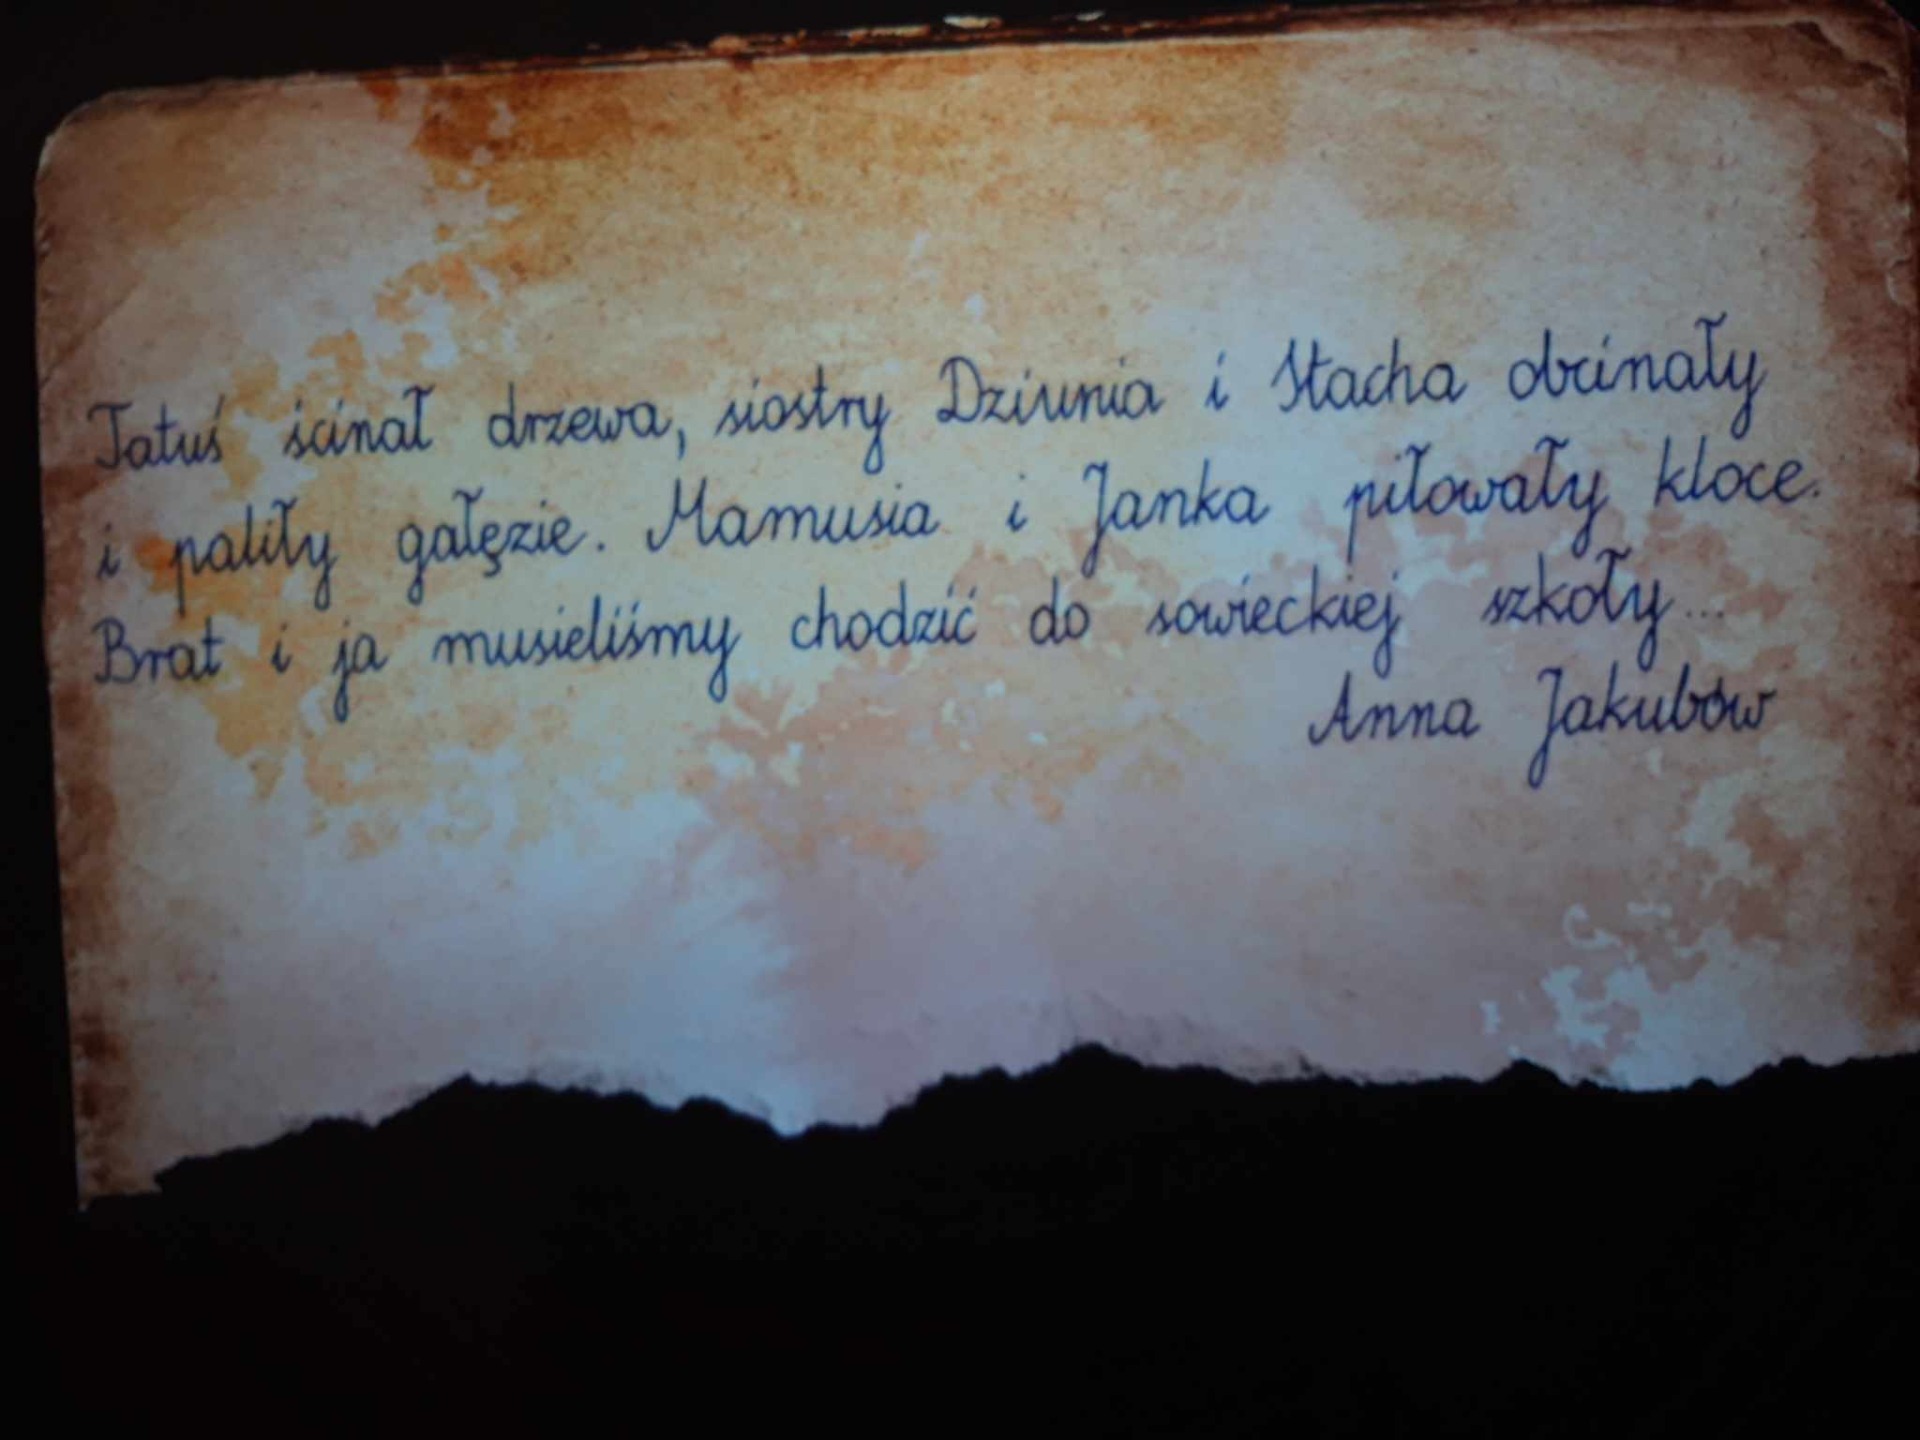 Tatuś ścinał drzewa, siostry Dziunia i Stacha obcinały
i paliły gałęzie. Mamusia i Janka piłowały kloce.
Brat i ja musieliśmy chodzić do sowieckiej szkoły...
Anna Jakubów